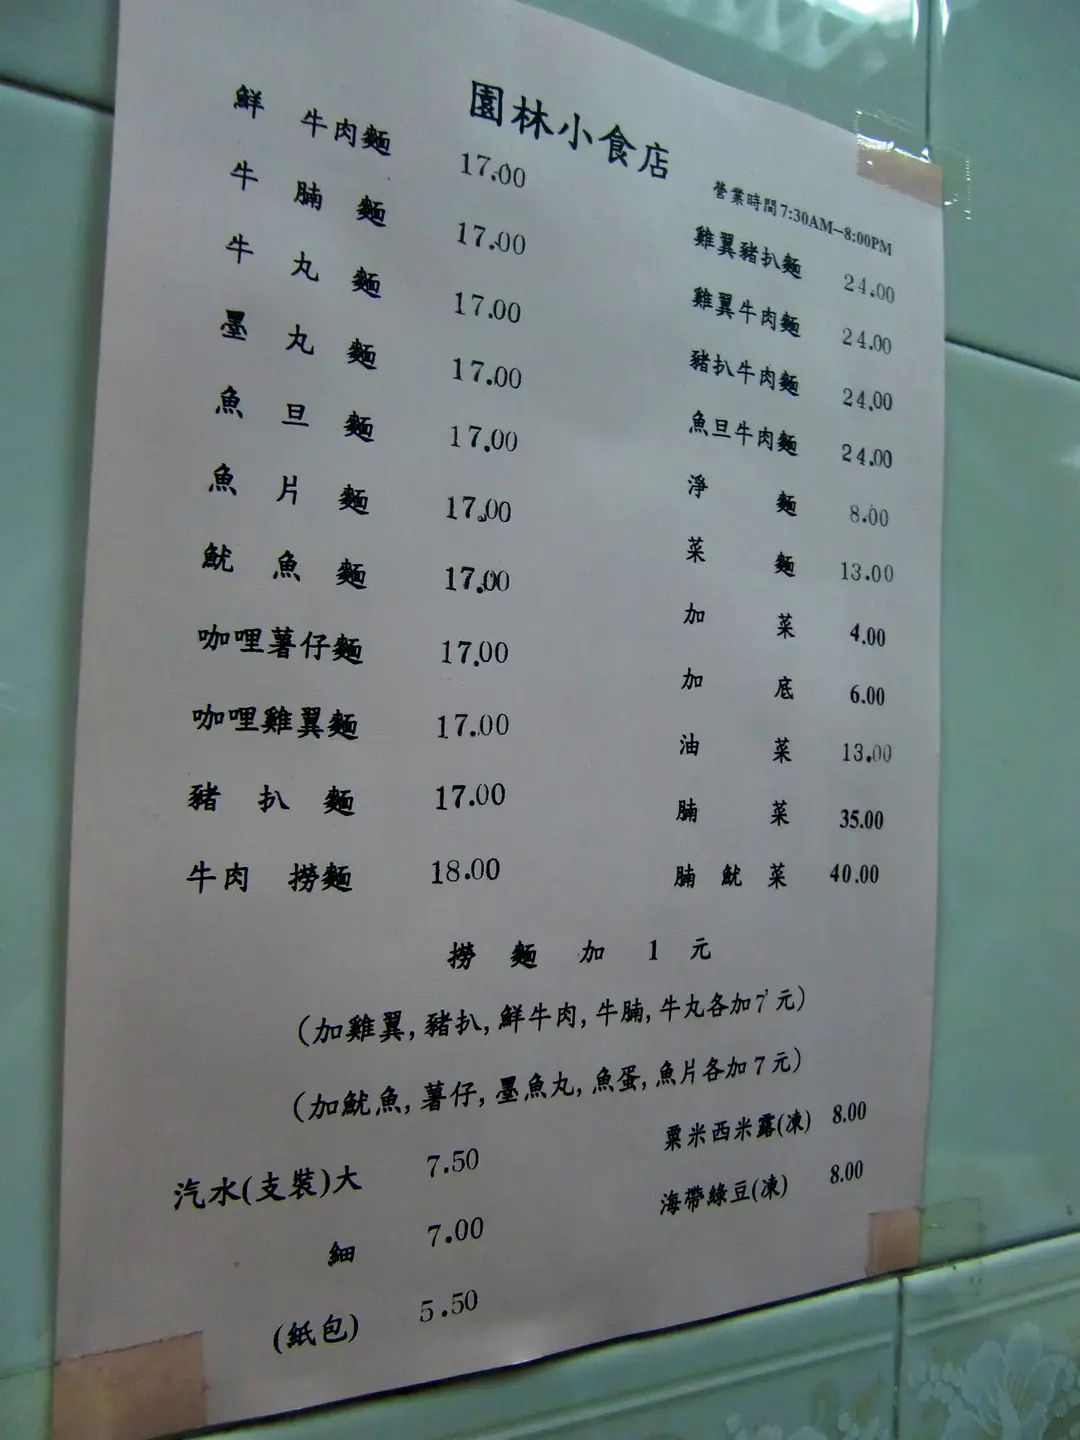 園林小食店
營業時間7:30AM—8:00PM
鮮牛肉麵 17.00
牛腩麵 17.00
牛丸麵 17.00
墨丸麵 17.00
魚旦麵 17.00
魚片麵 17.00
魷魚麵 17.00
咖哩薯仔麵 17.00
咖哩雞翼麵 17.00
豬扒麵 17.00
牛肉撈麵 18.00
雞翼豬扒麵 24.00
雞翼牛肉麵 24.00
豬扒牛肉麵 24.00
魚旦牛肉麵 24.00
淨麵 8.00
菜麵 13.00
加菜 4.00
加底 6.00
油菜 13.00
腩菜 35.00
腩魷菜 40.00
撈麵加1元
(加雞翼,豬扒,鮮牛肉,牛腩,牛丸各加7元)
(加魷魚,薯仔,墨魚丸,魚蛋,魚片各加7元)
汽水(支裝)大 7.50
細 7.00
(紙包) 5.50
粟米西米露(凍) 8.00
海帶綠豆(凍) 8.00